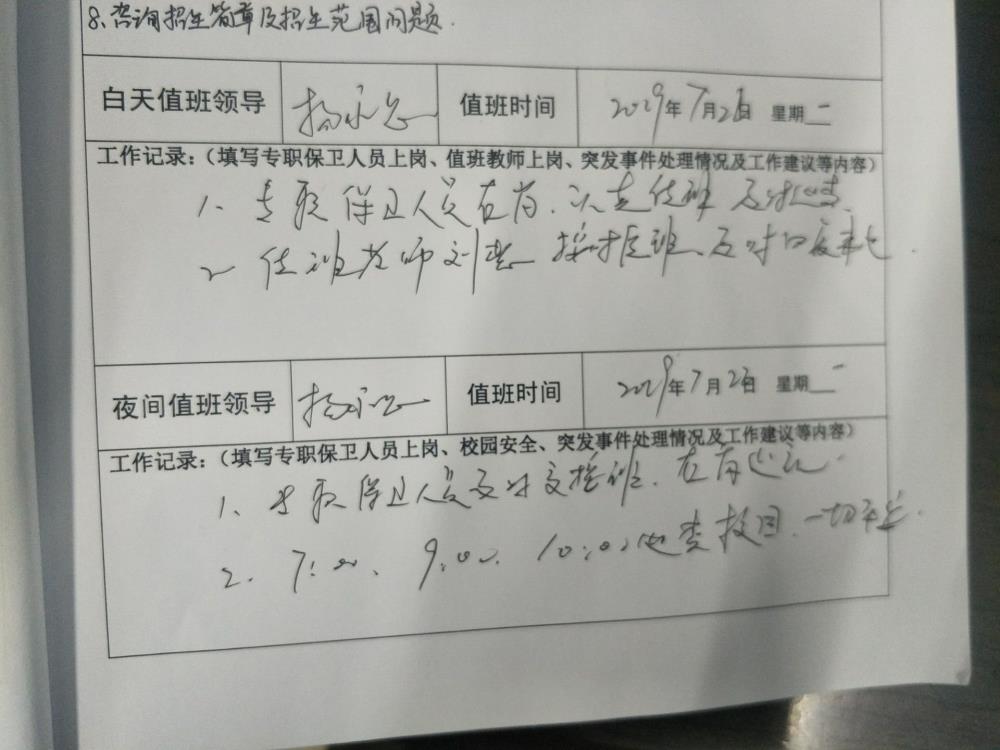 8、咨询招生简章及招生范围问题.
白天值班领导 杨永 值班时间 2019年7月2日 星期二
工作记录:(填写专职保卫人员上岗、值班教师上岗、突发事件处理情况及工作建议等内容)
1、专职保卫人员在岗、认真值班 及时巡查、
2 值班老师刘 按时值班、及时
夜间值班领导 杨永 值班时间 2019年7月2日 星期二
工作记录:(填写专职保卫人员上岗、校园安全、突发事件处理情况及工作建议等内容)
1、专职保卫人员及时交接班、在岗
2. 7:00、9:00、10:00巡查校园、一切平安.